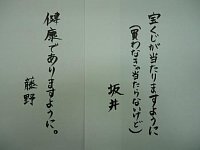 宝くじが当たりますように
(買わなきゃ当たらないけど)
坂井
健康でありますように。
藤野